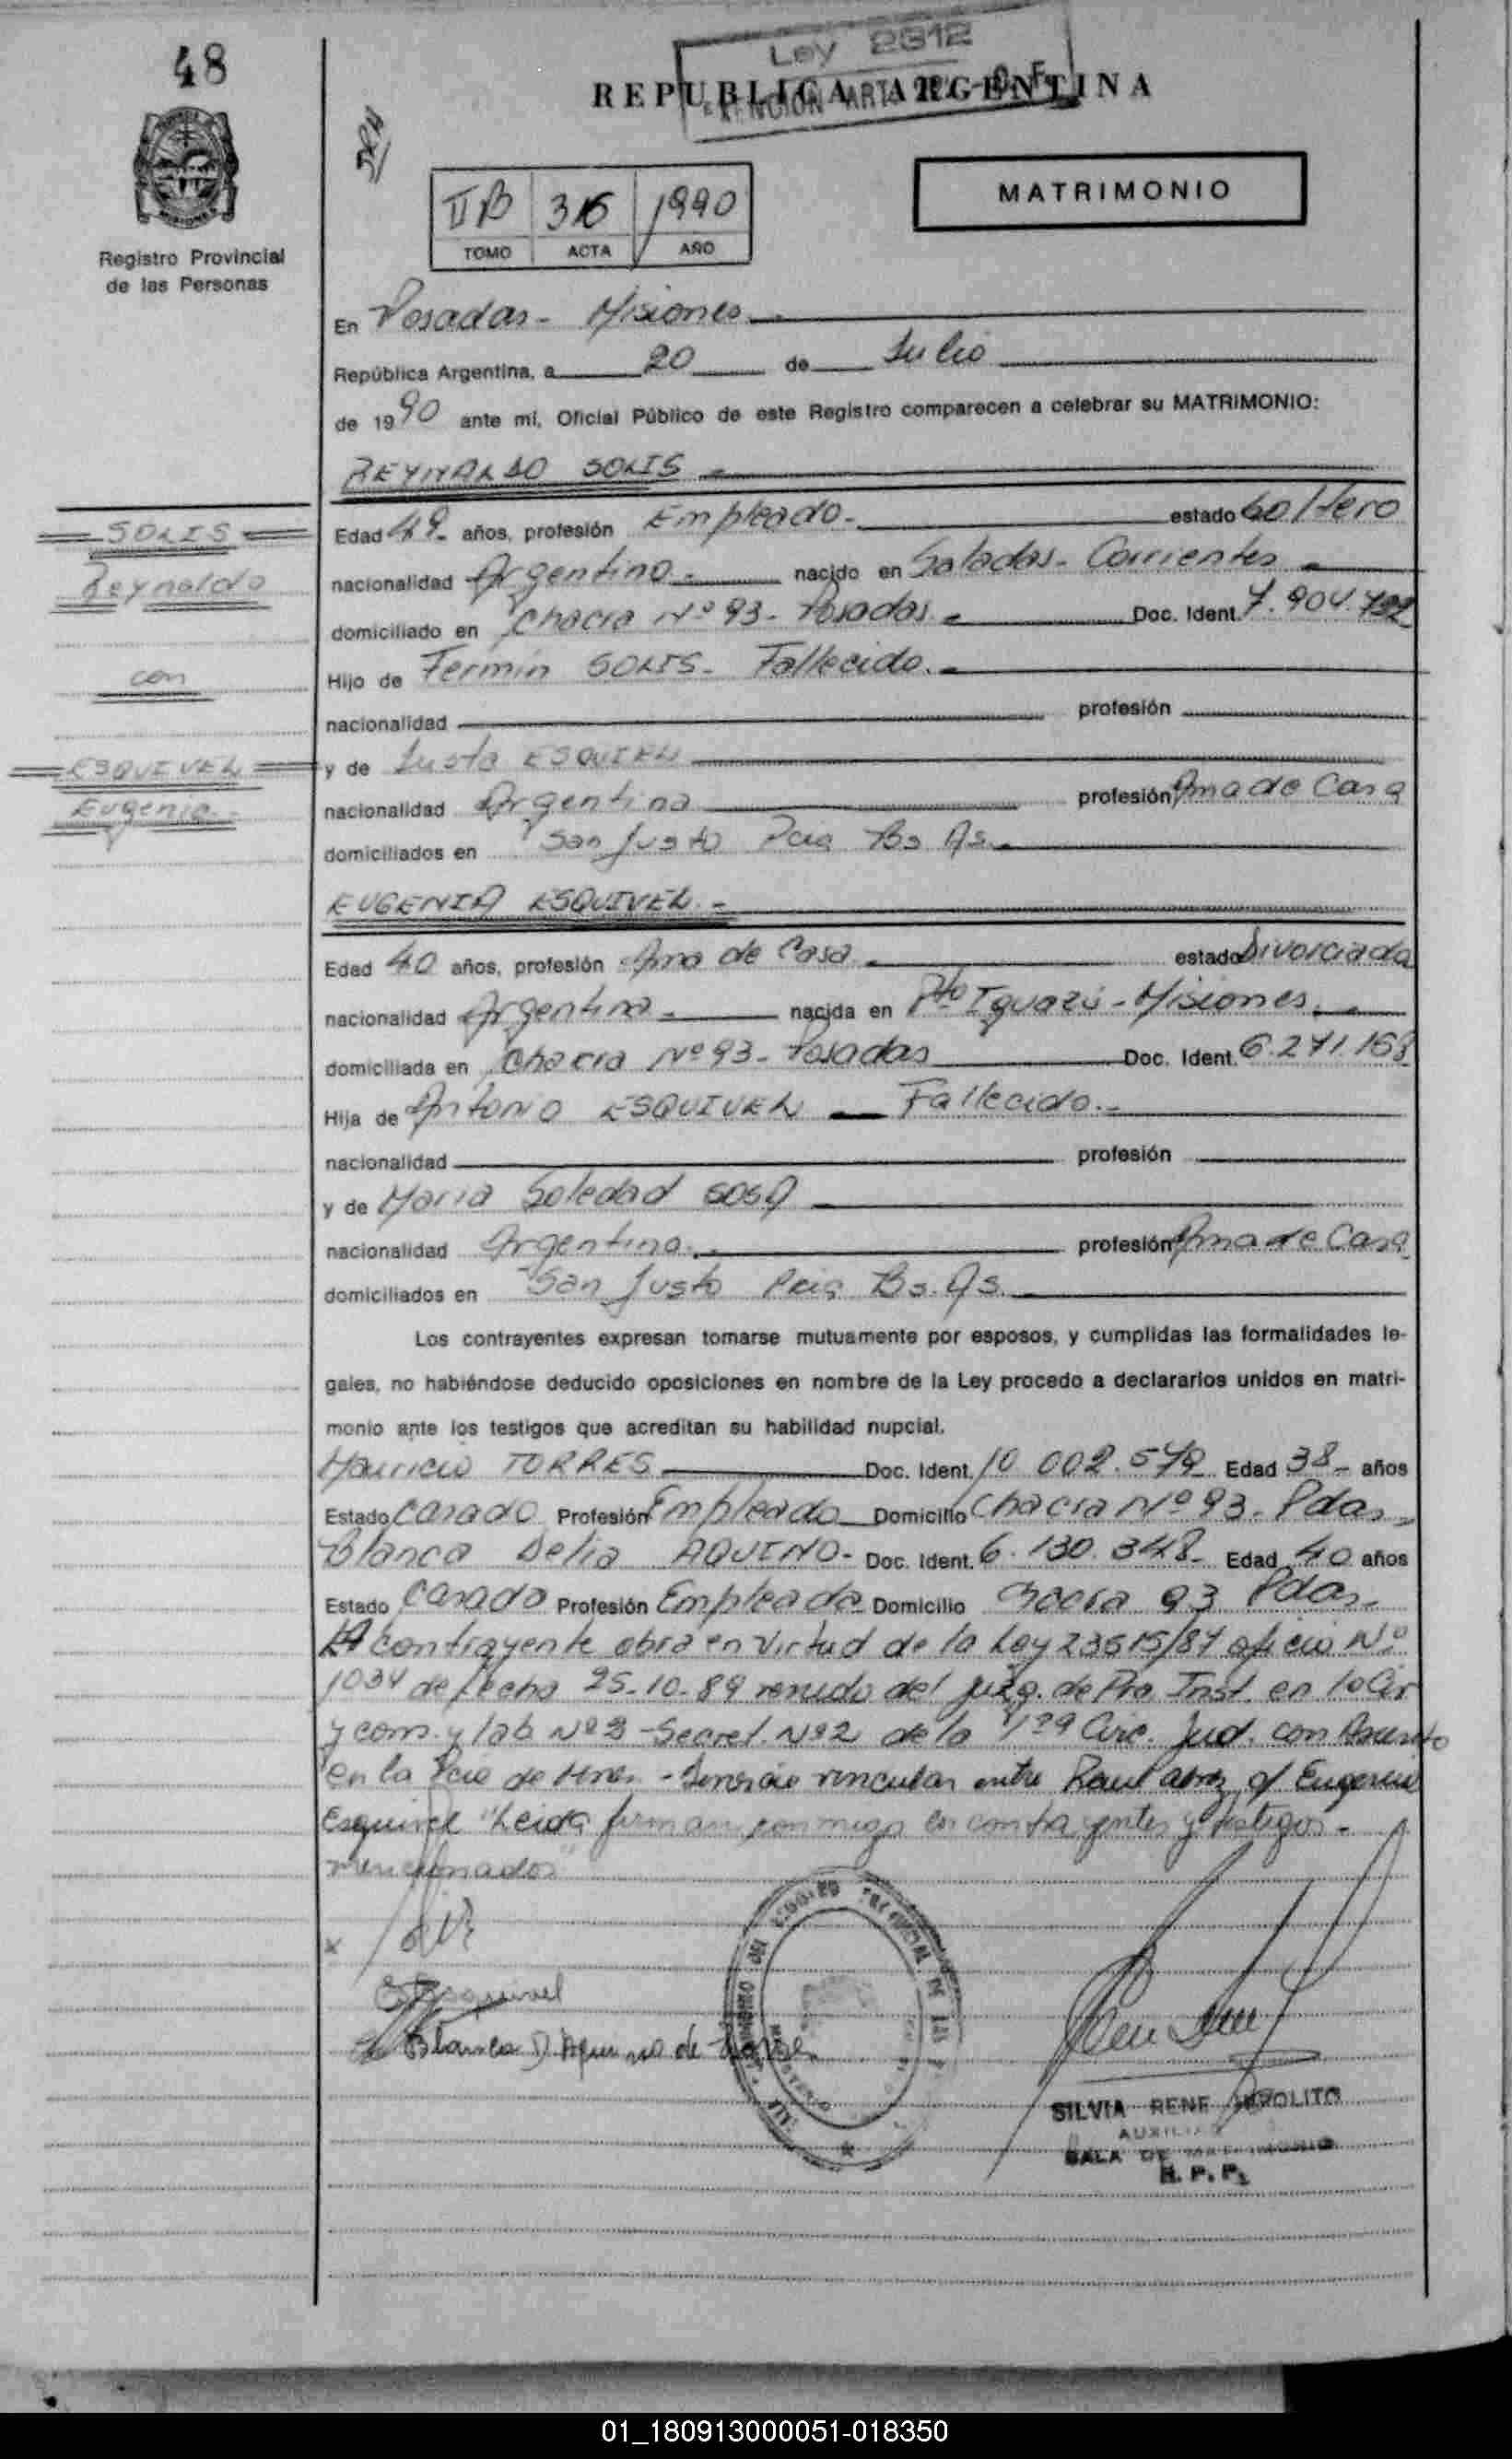 48
Ley 2312
REPUBLICA ARGENTINA
Registro Provincial
de las Personas
II B 316 1990
TOMO ACTA AÑO
MATRIMONIO
En Posadas - Misiones
República Argentina, a 20 de Julio
de 1990 ante mi, Oficial Público de este Registro comparecen a celebrar su MATRIMONIO:
REYNALDO SOLIS
SOLIS
Reynaldo
con
ESQUIVEL
Eugenia
Edad 49 años, profesión Empleado estado Soltero
nacionalidad Argentino nacido en Saladas - Corrientes
domiciliado en Chacra Nº 93 - Posadas Doc. Ident. 7.904.
Hijo de Fermín SOLIS - Fallecido
nacionalidad profesión
y de Justa ESQUIVEL
nacionalidad Argentina profesión Ama de Casa
domiciliados en San Justo Pcia Bs. As.
EUGENIA ESQUIVEL
Edad 40 años, profesión Ama de Casa estado Divorciada
nacionalidad Argentina nacida en Pto Iguazú - Misiones
domiciliada en Chacra Nº 93 - Posadas Doc. Ident. 6.271.168
Hija de Antonio ESQUIVEL - Fallecido
nacionalidad profesión
y de Maria Soledad SOSA
nacionalidad Argentina profesión Ama de Casa
domiciliados en San Justo Pcia Bs. As.
Los contrayentes expresan tomarse mutuamente por esposos, y cumplidas las formalidades le-
gales, no habiéndose deducido oposiciones en nombre de la Ley procedo a declararlos unidos en matri-
monio ante los testigos que acreditan su habilidad nupcial.
Mauricio TORRES Doc. Ident. 10 002.579 Edad 38 años
Estado Casado Profesión Empleado Domicilio Chacra Nº 93 - Pdas
Blanca Delia AQUINO - Doc. Ident. 6.130.348 Edad 40 años
Estado Casado Profesión Empleada Domicilio Chacra 93 Pdas
La contrayente obra en virtud de la Ley 23515/87 oficio Nº
1034 de fecha 25-10-89 venido del Juzg. de Pra Inst. en lo Civ
y com. y lab Nº 3 - Secret. Nº 2 de la 1ra Circ. Jud. con Asiento
en la Pcia de Mnes - Divorcio vincular entre Raul c/ Eugenia
Esquivel "Leida firman conmigo los contrayentes y testigos -
mencionados"
Esquivel
Blanca D Aquino de Torres
SILVIA RENE HIPOLITO
AUXILIAR
SALA DE MATRIMONIO
R. P. P.
01_180913000051-018350